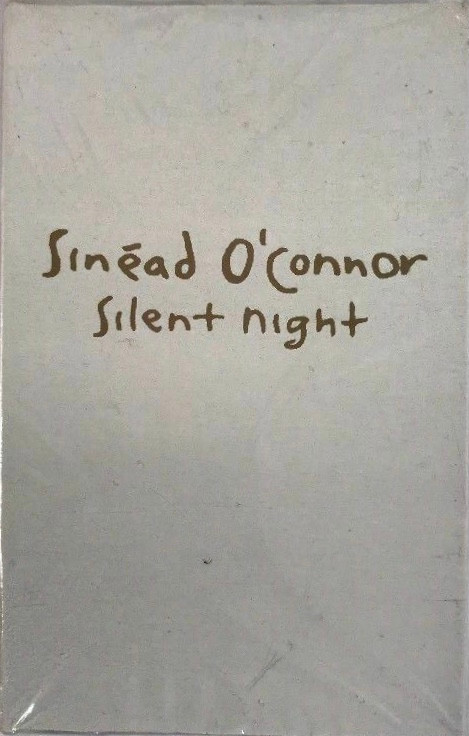 Sinēad O'Connor
Silent night